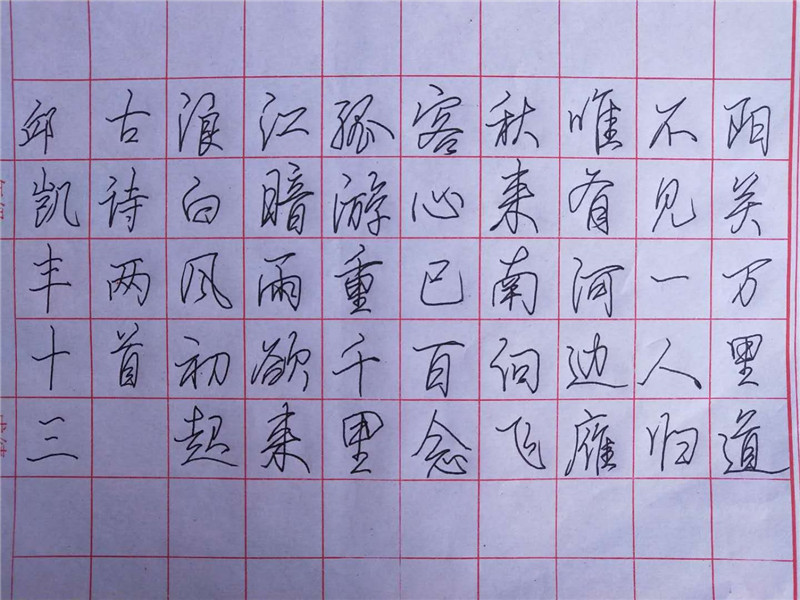 阳关万里道
不见一人归
唯有河边雁
秋来南向飞
客心已百念
孤游重千里
江暗雨欲来
浪白风初起
古诗两首
邱凯丰十三